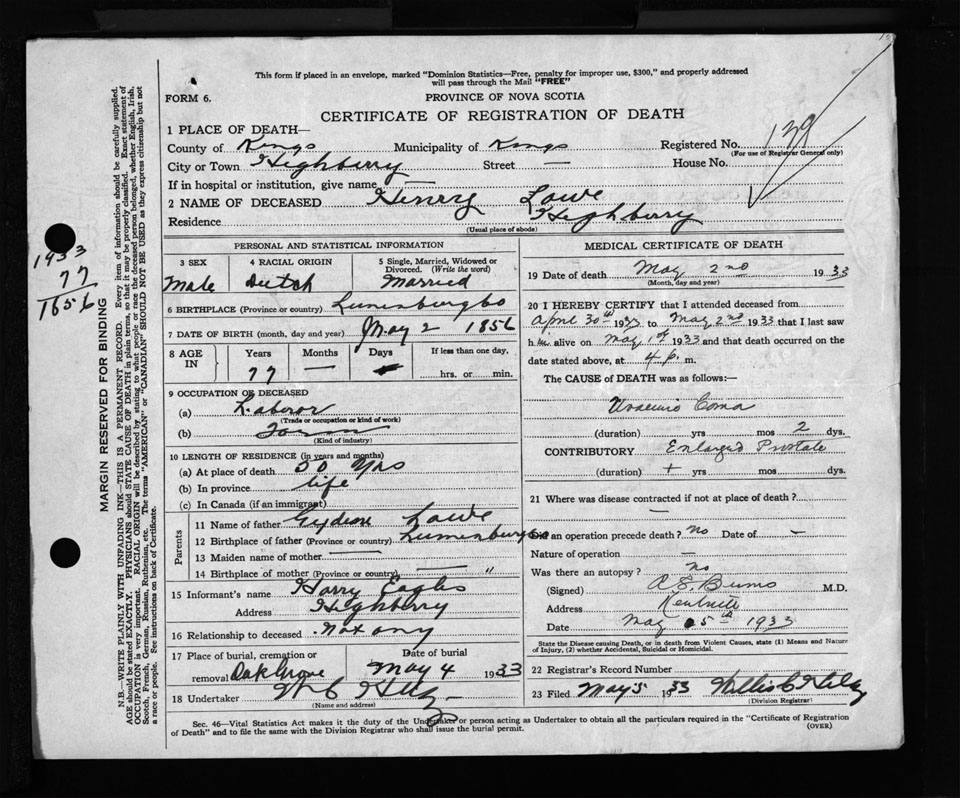 This form if placed in an envelope, marked "Dominion Statistics—Free, penalty for improper use, $300," and properly addressed
will pass through the Mail "FREE"
FORM 6.
PROVINCE OF NOVA SCOTIA
CERTIFICATE OF REGISTRATION OF DEATH
1 PLACE OF DEATH—
County of Kings Municipality of Kings Registered No. 139
(For use of Registrar General only)
City or Town Highberry Street — House No.
If in hospital or institution, give name —
2 NAME OF DECEASED Henry Lowe
Residence Highberry
(Usual place of abode)
PERSONAL AND STATISTICAL INFORMATION
3 SEX 4 RACIAL ORIGIN 5 Single, Married, Widowed or Divorced. (Write the word)
Male Dutch Married
6 BIRTHPLACE (Province or country) Lunenburg Co
7 DATE OF BIRTH (month, day and year) May 2 1856
8 AGE IN Years Months Days If less than one day,
77 — hrs. or min.
9 OCCUPATION OF DECEASED
(a) Laboror
(Trade or occupation or kind of work)
(b) Farm
(Kind of industry)
10 LENGTH OF RESIDENCE (in years and months)
(a) At place of death 50 Yrs
(b) In province life
(c) In Canada (if an immigrant)
Parents
11 Name of father Lowe
12 Birthplace of father (Province or country) Lunenburg Co
13 Maiden name of mother —
14 Birthplace of mother (Province or country) — "
15 Informant's name Harry Eagles
Address Highberry
16 Relationship to deceased Not any
17 Place of burial, cremation or removal Oak Grove Date of burial May 4 1933
18 Undertaker W C
(Name and address)
MEDICAL CERTIFICATE OF DEATH
19 Date of death May 2nd 1933
(Month, day and year)
20 I HEREBY CERTIFY that I attended deceased from
April 30th 1933 to May 2nd 1933 that I last saw
h im alive on May 1st 1933 and that death occurred on the
date stated above, at 4 p. m.
The CAUSE of DEATH was as follows:—
Uraemic Coma
(duration) yrs mos 2 dys.
CONTRIBUTORY Enlarged Prostate
(duration) + yrs mos dys.
21 Where was disease contracted if not at place of death?
—
Did an operation precede death? no Date of —
Nature of operation —
Was there an autopsy? no
(Signed) M.D.
Address Kentville
Date May 5th 1933
State the Disease causing Death, or in death from Violent Causes, state (1) Means and Nature
of Injury, (2) whether Accidental, Suicidal or Homicidal.
22 Registrar's Record Number
23 Filed May 5 1933 Willis C
(Division Registrar)
Sec. 46—Vital Statistics Act makes it the duty of the Undertaker or person acting as Undertaker to obtain all the particulars required in the "Certificate of Registration
of Death" and to file the same with the Division Registrar who shall issue the burial permit.
(OVER)
1933
77
1856
MARGIN RESERVED FOR BINDING
N.B.—WRITE PLAINLY WITH UNFADING INK—THIS IS A PERMANENT RECORD. Every item of information should be carefully supplied.
AGE should be stated EXACTLY. PHYSICIANS should STATE CAUSE OF DEATH in plain terms, so that it may be properly classified. Exact statement of
OCCUPATION is very important. RACIAL ORIGIN will be described by stating to what people or race the deceased person belonged, whether English, Irish,
Scotch, French, German, Russian, Ruthenian, etc. The terms "AMERICAN" or "CANADIAN" SHOULD NOT BE USED as they express citizenship but not
a race or people. See instructions on back of Certificate.